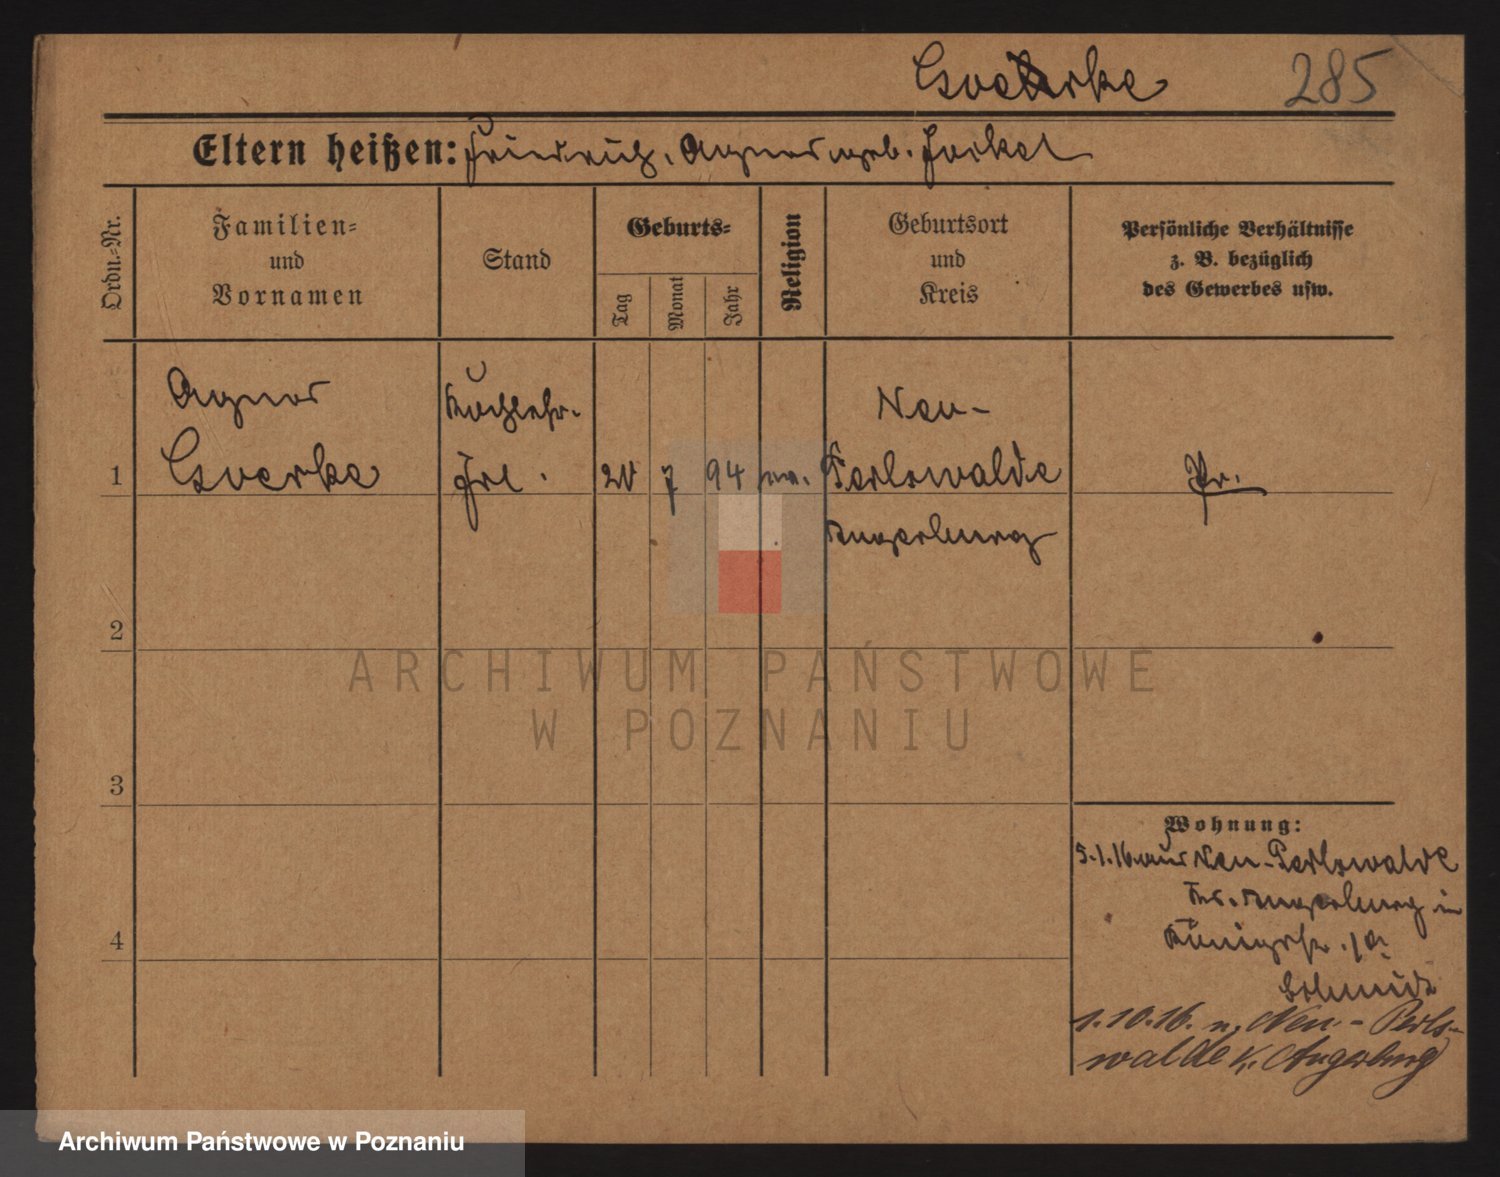 Goerke 285
Eltern heißen: Friedrich, Agnes geb. Jorkel
Ordn.=Nr.
Familien=
und
Vornamen
Stand
Geburts=
Tag
Monat
Jahr
Religion
Geburtsort
und
Kreis
Persönliche Verhältnisse
z. B. bezüglich
des Gewerbes usw.
Agnes Kochlehr- Neu-
1 Goerke Frl. 20 7 94 ew. Perlswalde Pr.
Angerburg
2
ARCHIWUM PAŃSTWOWE
W POZNANIU
3
Wohnung:
5.1.16 aus Neu-Perlswalde
Krs. Angerburg in
Königstr.
4
Schmidt
1.10.16. n. Neu-Perls-
walde K. Angerburg
Archiwum Państwowe w Poznaniu